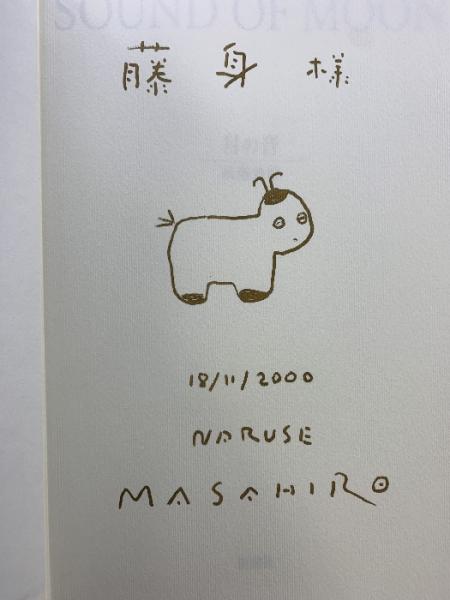 SOUND OF MOON
藤身様
月の音
18/11/2000
NARUSE
MASAHIRO